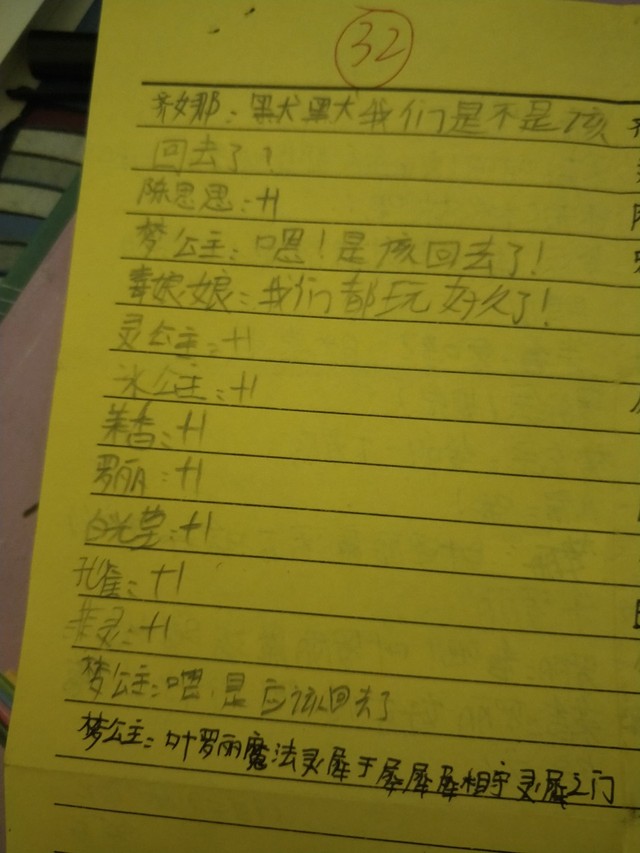 32
齐娜：黑犬黑犬我们是不是该
回去了？
陈思思：+1
梦公主：嗯！是该回去了！
毒娘娘：我们都玩好久了！
灵公主：+1
冰公主：+1
茉香：+1
罗丽：+1
白光莹：+1
孔雀：+1
菲灵：+1
梦公主：嗯，是应该回去了
梦公主：叶罗丽魔法灵犀于犀犀犀相守灵犀之门